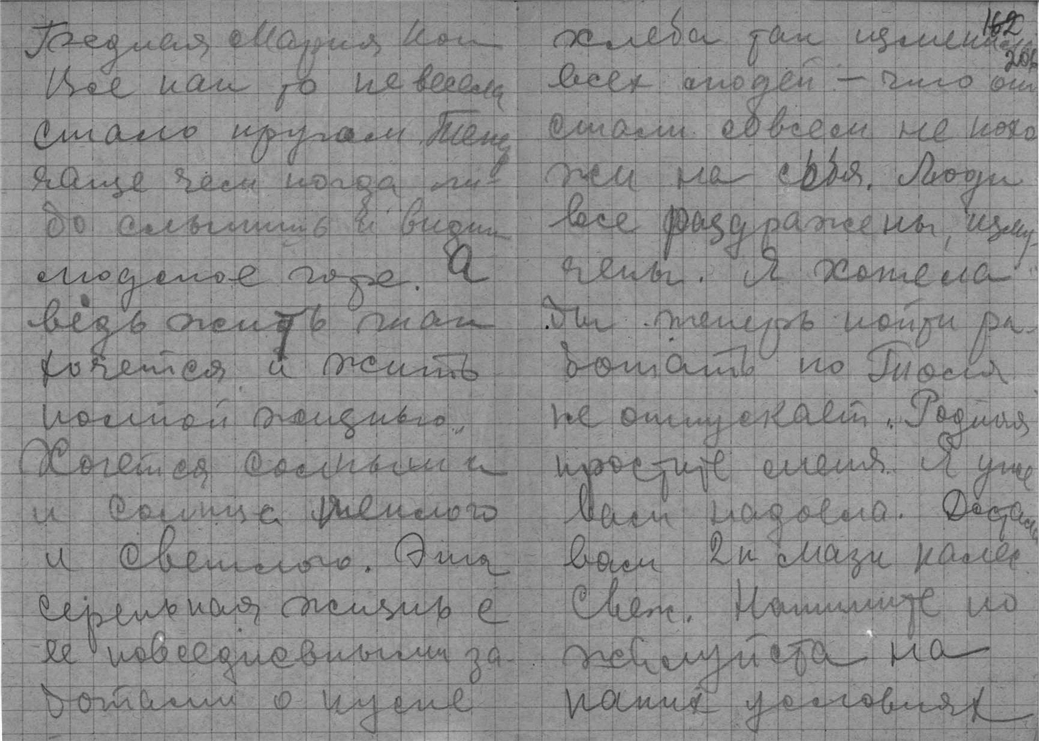 Бедная Мария Кон
Все как то невесело
стало кругом. Тепер
чаще чем когда ли-
бо слышишь и видиш
людское горе. А
ведь жить так
хочется и жить
полной жизнью.
Хочется солнышка
и солнца теплого
и светлого. Эта
серенькая жизнь с
ее повседневными за
ботами о куске
162
хлеба так изменила
всех людей – что они
стали совсем не похо
жи на себя. Люди
все раздражены, изму
чены. Я хотела
бы теперь пойти ра-
ботать но Тося
не отпускает. Родная
простите меня. Я уже
вам надоела. Достала
вам 2 к мази колес
Свеж. Напишите по
жалуйста на
каких условиях